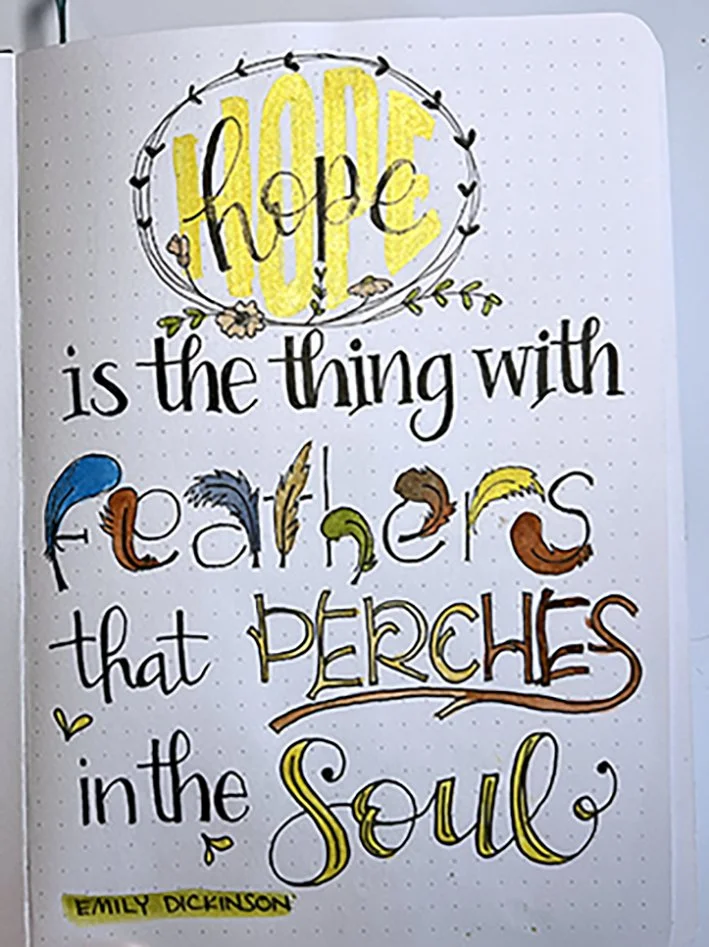 HOPE
hope
is the thing with
feathers
that PERCHES
in the Soul
EMILY DICKINSON